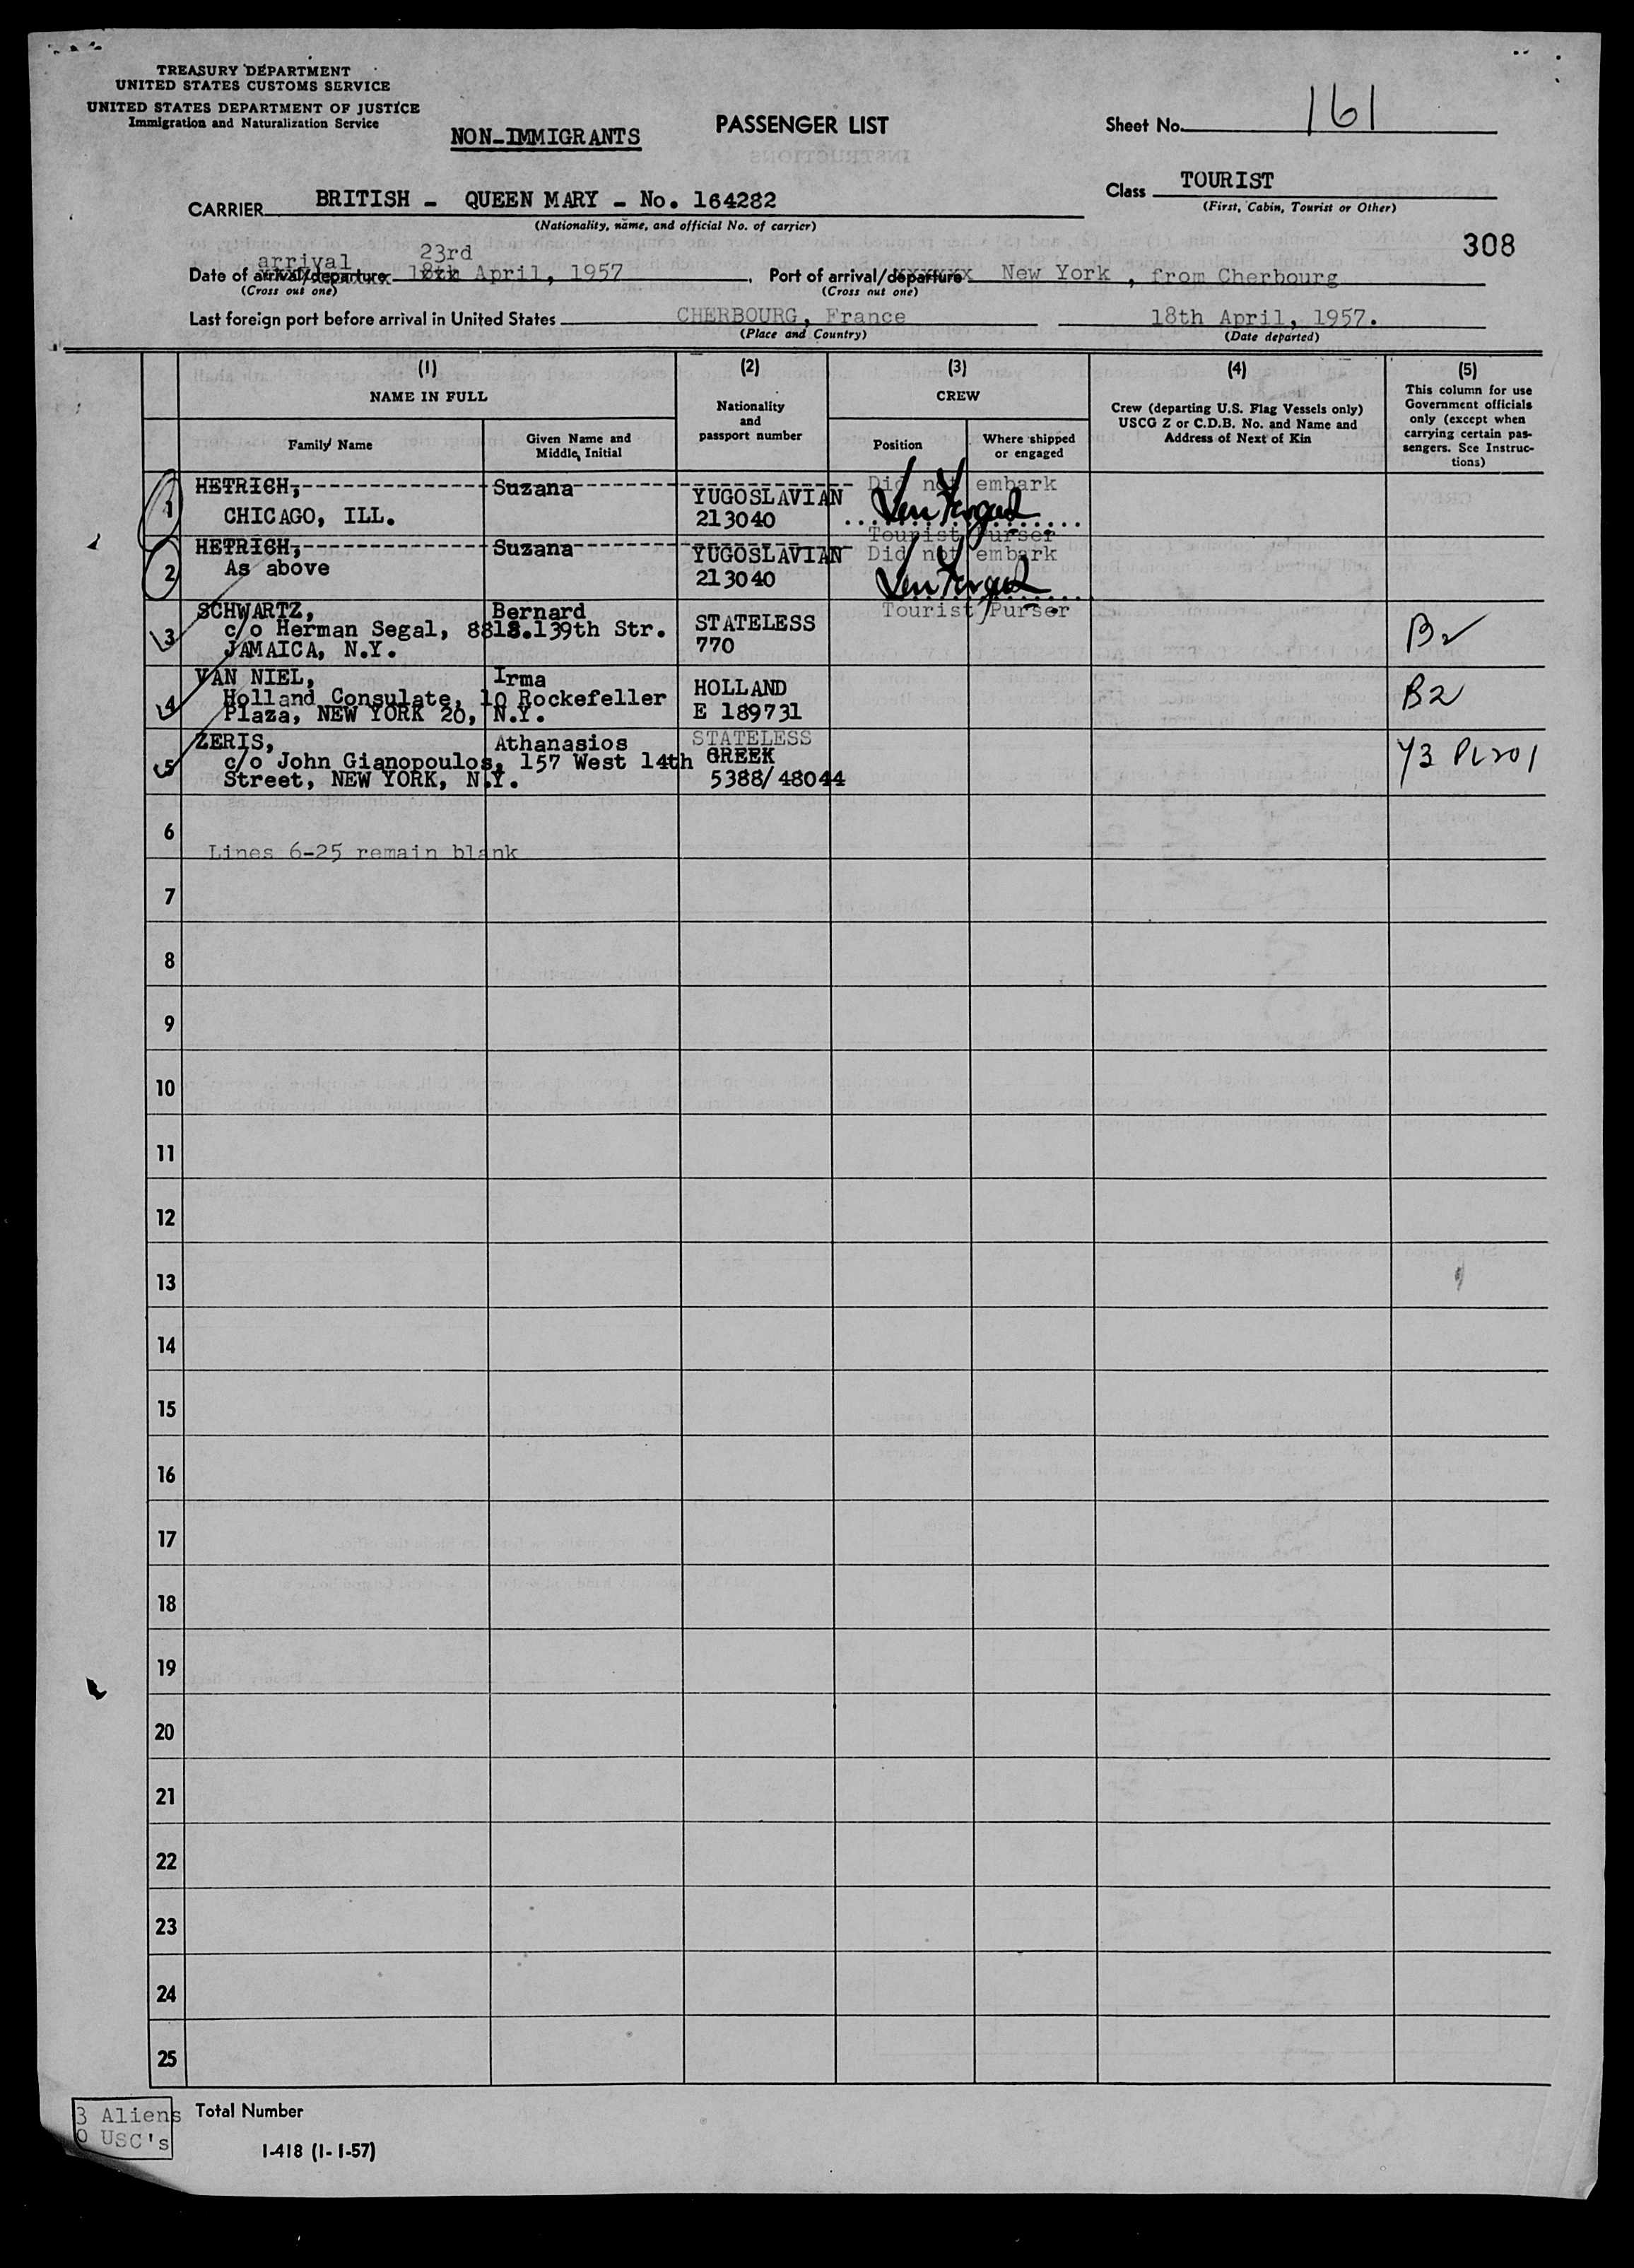 TREASURY DEPARTMENT
UNITED STATES CUSTOMS SERVICE
UNITED STATES DEPARTMENT OF JUSTICE
Immigration and Naturalization Service
NON-IMMIGRANTS
PASSENGER LIST
Sheet No. 161
CARRIER BRITISH - QUEEN MARY - No. 164282
(Nationality, name, and official No. of carrier)
Class TOURIST
(First, Cabin, Tourist or Other)
308
arrival 23rd
Date of arrival/departure 18th April, 1957
(Cross out one)
Port of arrival/departure New York, from Cherbourg
(Cross out one)
Last foreign port before arrival in United States CHERBOURG, France
(Place and Country)
18th April, 1957.
(Date departed)
(1)
NAME IN FULL
Family Name
Given Name and Middle Initial
(2)
Nationality
and
passport number
(3)
CREW
Position
Where shipped
or engaged
(4)
Crew (departing U.S. Flag Vessels only)
USCG Z or C.D.B. No. and Name and
Address of Next of Kin
(5)
This column for use
Government officials
only (except when
carrying certain pas-
sengers. See Instruc-
tions)
1 HETRICH, Suzana YUGOSLAVIAN Did not embark
CHICAGO, ILL. 213040
Tourist Purser
2 HETRICH, Suzana YUGOSLAVIAN Did not embark
As above 213040
Tourist Purser
3 SCHWARTZ, Bernard STATELESS B2
c/o Herman Segal, 139th Str.
JAMAICA, N.Y. 770
4 VAN NIEL, Irma HOLLAND B2
Holland Consulate, 10 Rockefeller
Plaza, NEW YORK 20, N.Y. E 189731
5 ZERIS, Athanasios STATELESS
c/o John Gianopoulos, 157 West 14th GREEK
Street, NEW YORK, N.Y. 5388/48044
6
Lines 6-25 remain blank
7
8
9
10
11
12
13
14
15
16
17
18
19
20
21
22
23
24
25
3 Aliens
0 USC's
Total Number
I-418 (1-1-57)